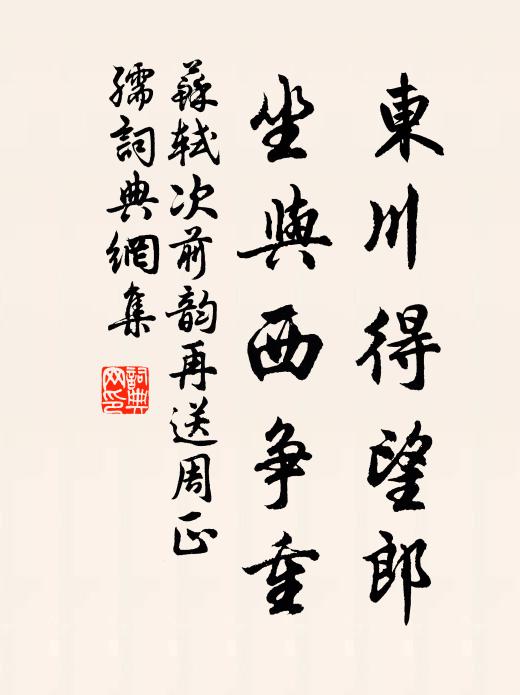 東川得望郎
坐與西爭重
蘇軾次前韵再送周正
孺詞典網集
詞典
网印